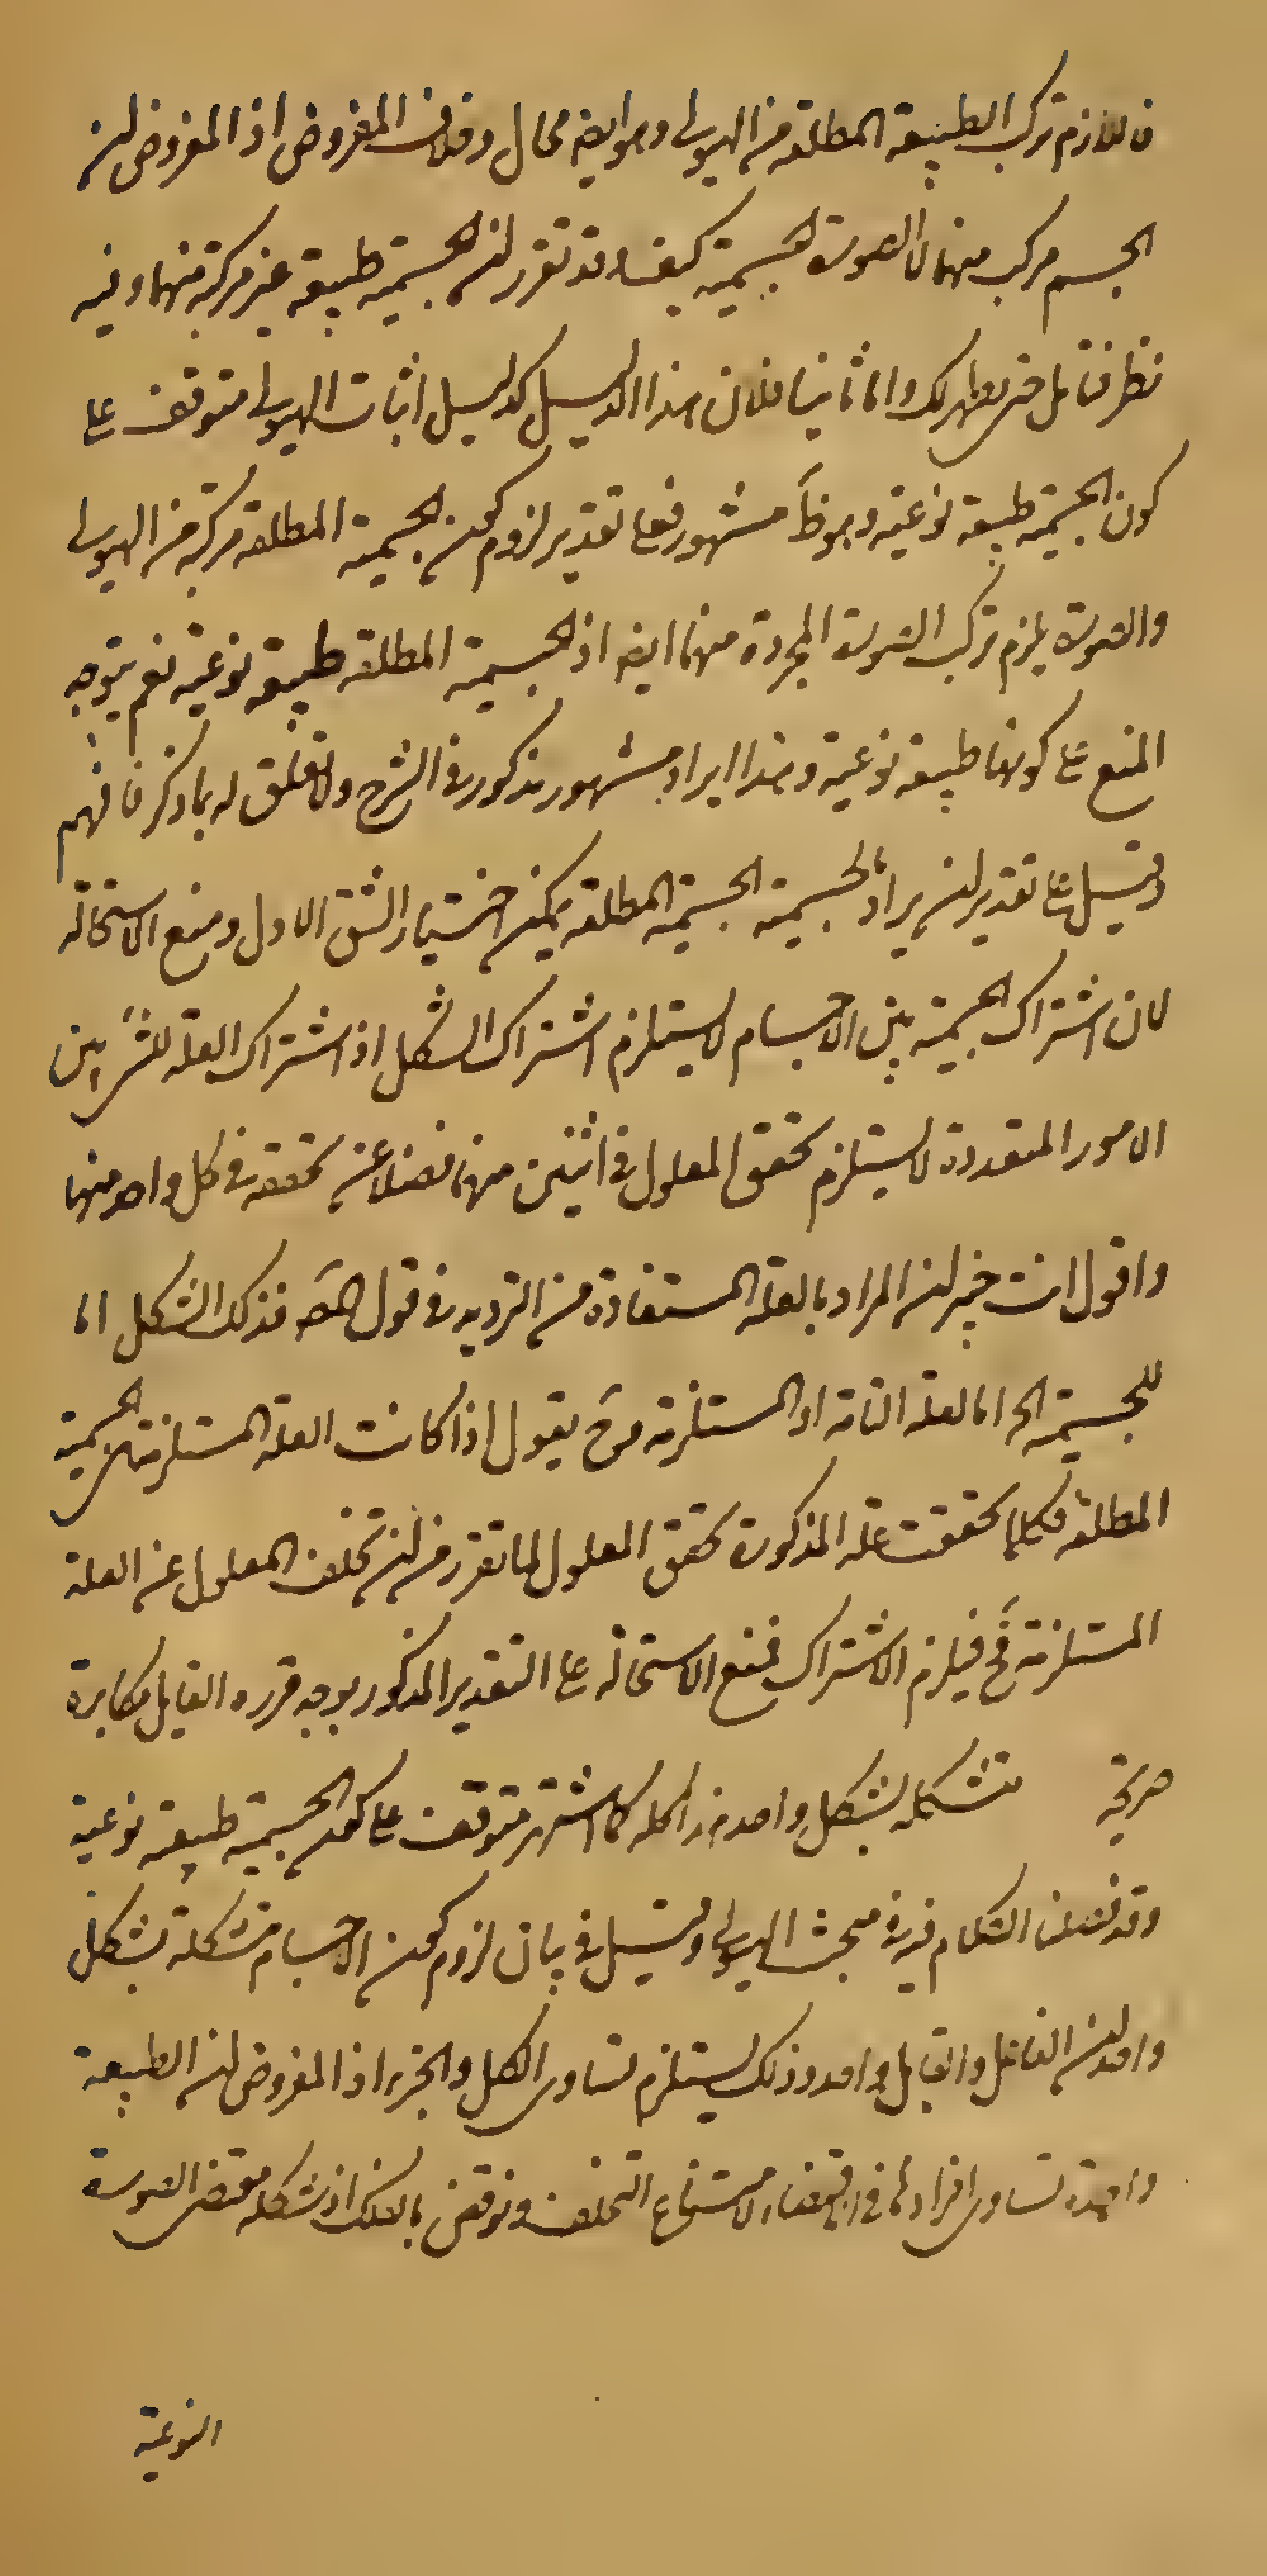 فاللازم تركب الطبيعة المطلقة من الهيولى وهو ايضا محال وخلاف المفروض اذ المفروض ان
الجسم مركب منهما لا الصورة الجسمية كيف وقد تقرر ان الجسمية طبيعة غير مركبة منهما وفيه
نظر فتامل حتى يظهر لك واما ثانيا فلان هذا الدليل كدليل اثبات الهيولى متوقف على
كون الجسمية طبيعة نوعية وهو ظ مشهور فعلى تقدير لزوم كون الجسمية المطلقة مركبة من الهيولى
والصورة يلزم تركب الصورة المجردة منهما ايضا اذ الجسمية المطلقة طبيعة نوعية نعم يتوجه
المنع على كونها طبيعة نوعية وهذا ايراد مشهور مذكور في الشرح ولا تعلق له بما ذكر فافهم
وقيل على تقدير ان يراد بالجسمية الجسمية المطلقة يمكن اختيار الشق الاول ومنع الاستحالة
لان اشتراك الجسمية بين الاجسام لا يستلزم اشتراك الشكل اذ اشتراك العلة للشئ بين
الامور المتعددة لا يستلزم تحقق المعلول في اثنين منها فضلا عن تحققه في كل واحد منها
واقول انت خبير ان المراد بالعلة المستفادة من الترديد في قول المصَ فذلك الشكل اما
للجسمية الخ اما العلة التامة او المستلزمة وحَ يقول اذا كانت العلة المستلزمة هي الجسمية
المطلقة فكلما تحققت علة المذكورة تحقق المعلول لما تقرر من ان تخلف المعلول عن العلة
المستلزمة مَح فيلزم الاشتراك فمنع الاستحالة على التقدير المذكور بوجه قرره القايل مكابرة
صريحة متشكلة بشكل واحد هذا كله كما اشتهر متوقف على كون الجسمية طبيعة نوعية
وقد فصلنا الكلام فيه في مبحث الهيولى وقيل في بيان لزوم كون الاجسام متشكلة بشكل
واحد ان الفاعل والقابل واحد وذلك يستلزم تساوى الكل والجزء اذ المفروض ان الطبيعة
واحدة تساوى افرادها في اقتضاء لامتناع التخلف ونوقض بالفلك اذ شكله مقتضى الصورة
النوعية